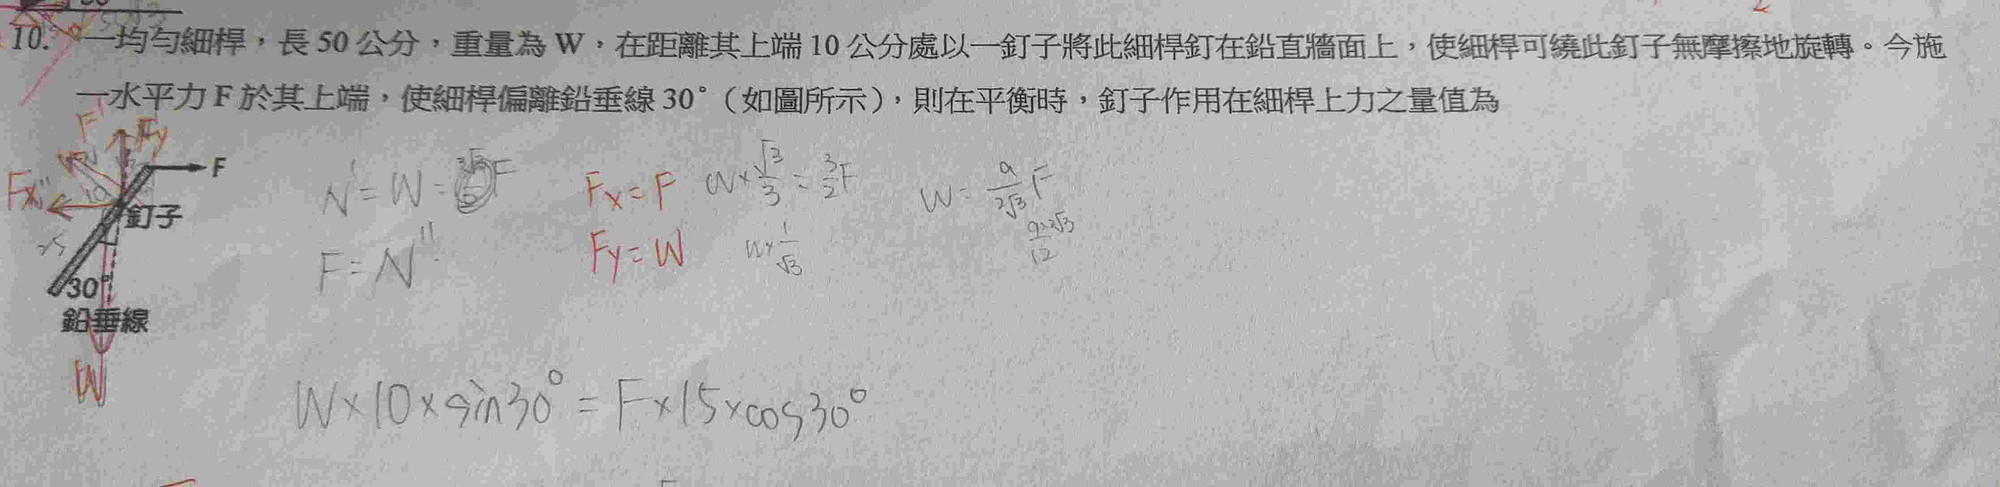 10. 一均勻細桿，長 50 公分，重量為 W，在距離其上端 10 公分處以一釘子將此細桿釘在鉛直牆面上，使細桿可繞此釘子無摩擦地旋轉。今施
一水平力 F 於其上端，使細桿偏離鉛垂線 30°（如圖所示），則在平衡時，釘子作用在細桿上力之量值為
Fy
F
Fx
10
釘子
25
30°
鉛垂線
W
N' = W = F
F = N''
Fx = F
Fy = W
W × √3/3 = 3/2 F
W × 1/√3
W = 9/2√3 F
9×2√3/12
W×10×sin30° = F×15×cos30°